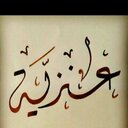 عنزيّة